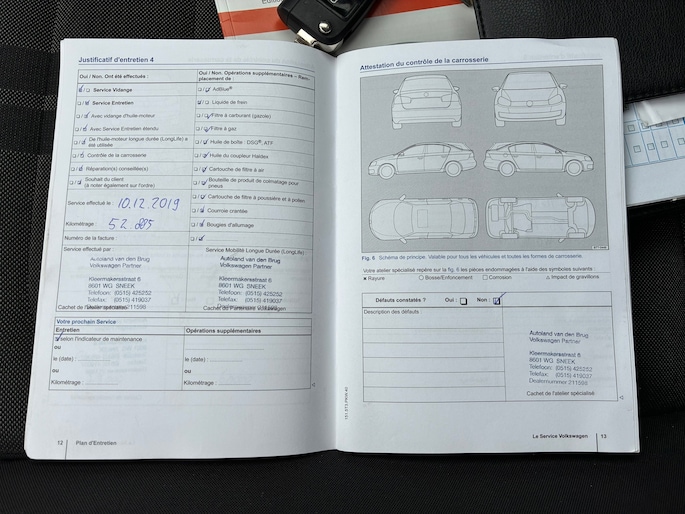 Justificatif d'entretien 4
Oui / Non. Ont été effectués :
Service Vidange
Service Entretien
Avec vidange d'huile-moteur
Avec Service Entretien étendu
De l'huile-moteur longue durée (LongLife) a
été utilisée
Contrôle de la carrosserie
Réparation(s) conseillée(s)
Souhait du client
(à noter également sur l'ordre)
Service effectué le 10.12 2019
Kilométrage :
Numéro de la facture :
Service effectué par
Autoland van den Brug
Volkswagen Partner
Kleermakersstraat 6
8601 WG SNEEK
Telefoon: (0515) 425252
Telefax: (0515) 419037
Cachet de l'atelier spécialisé
Oui / Non. Opérations supplémentaires – Rem-
placement de :
AdBlue®
Liquide de frein
Filtre à carburant (gazole)
Filtre à gaz
Huile de boîte : DSG®, ATF
Huile du coupleur Haldex
Cartouche de filtre à air
Bouteille de produit de colmatage pour
pneus
Cartouche de filtre à poussière et à pollen
Courroie crantée
Bougies d'allumage
Service Mobilité Longue Durée (LongLife)
Autoland van den Brug
Volkswagen Partner
Kleermakersstraat 6
8601 WG SNEEK
Telefoon: (0515) 425252
Telefax: (0515) 419037
Cachet du Partenaire Volkswagen
Votre prochain Service
Entretien
selon l'indicateur de maintenance :
ou
le (date) :
ou
Kilométrage :
Opérations supplémentaires
le (date) :
ou
Kilométrage :
12 Plan d'Entretien
Attestation du contrôle de la carrosserie
Fig. 6 Schéma de principe. Valable pour tous les véhicules et toutes les formes de carrosserie.
Votre atelier spécialisé repère sur la fig. 6 les pièces endommagées à l'aide des symboles suivants :
Rayure Bosse/Enfoncement Corrosion Impact de gravillons
Défauts constatés ? Oui : Non :
Description des défauts :
Autoland van den Brug
Volkswagen Partner
Kleermakersstraat 6
8601 WG SNEEK
Telefoon: (0515) 425252
Telefax: (0515) 419037
Dealernummer 211595
Cachet de l'atelier spécialisé
Le Service Volkswagen 13